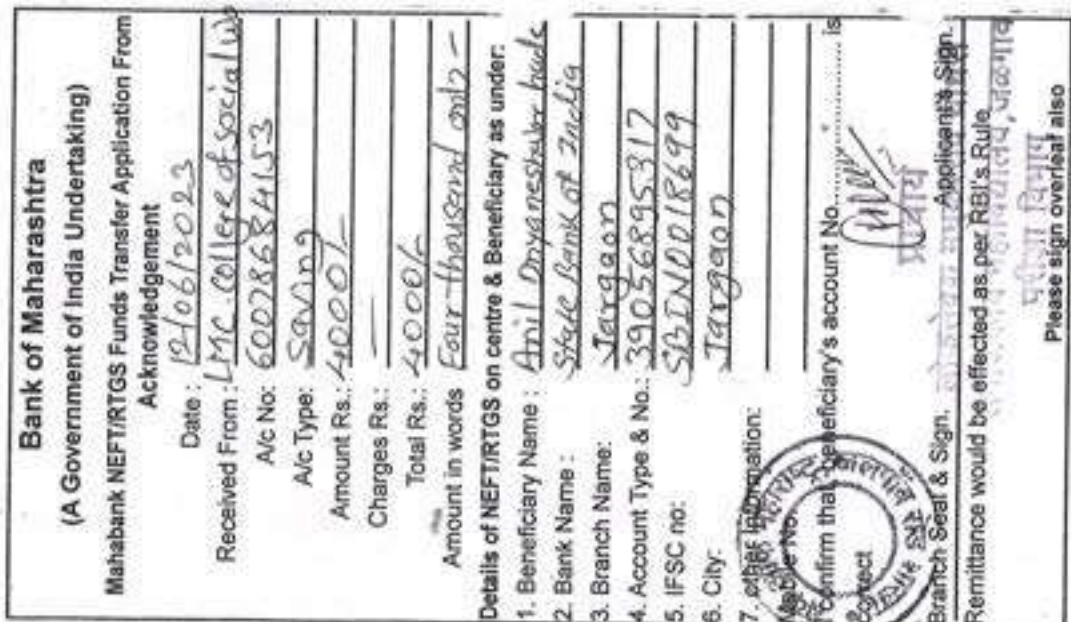 Bank of Maharashtra
(A Government of India Undertaking)
Mahabank NEFT/RTGS Funds Transfer Application From
Acknowledgement
Date : 12/06/2023
Received From : LMC. College of social W
A/c No: 60078684153
A/c Type: Saving
Amount Rs.: 4000/-
Charges Rs.: —
Total Rs.: 4000/-
Amount in words Four thousand only -
Details of NEFT/RTGS on centre & Beneficiary as under:
1. Beneficiary Name : Anil Dnyaneshwar
2. Bank Name : State Bank of India
3. Branch Name: Jargaon
4. Account Type & No.: 39056895317
5. IFSC no: SBIN0018699
6. City: Jargaon
7. other Information:
Mobile No.
I confirm that beneficiary's account No.............. is
correct
प्राचार्य
Branch Seal & Sign. Applicant's Sign.
Remittance would be effected as per RBI's Rule
महाविद्यालय, जळगाव
परीक्षा विभाग
Please sign overleaf also